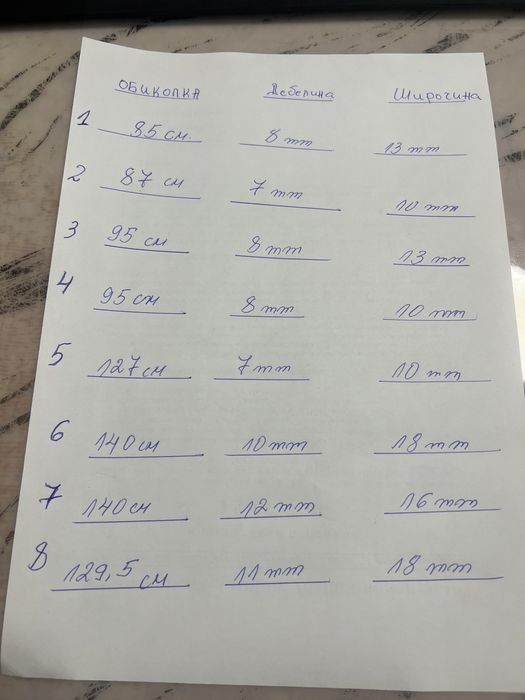 ОБИКОЛКА Дебелина Широчина
1 85 см. 8 mm 13 mm
2 87 см 7 mm 10 mm
3 95 см 8 mm 13 mm
4 95 см 8 mm 10 mm
5 127 см 7 mm 10 mm
6 140 см 10 mm 18 mm
7 140 см 12 mm 16 mm
8 129,5 см 11 mm 18 mm